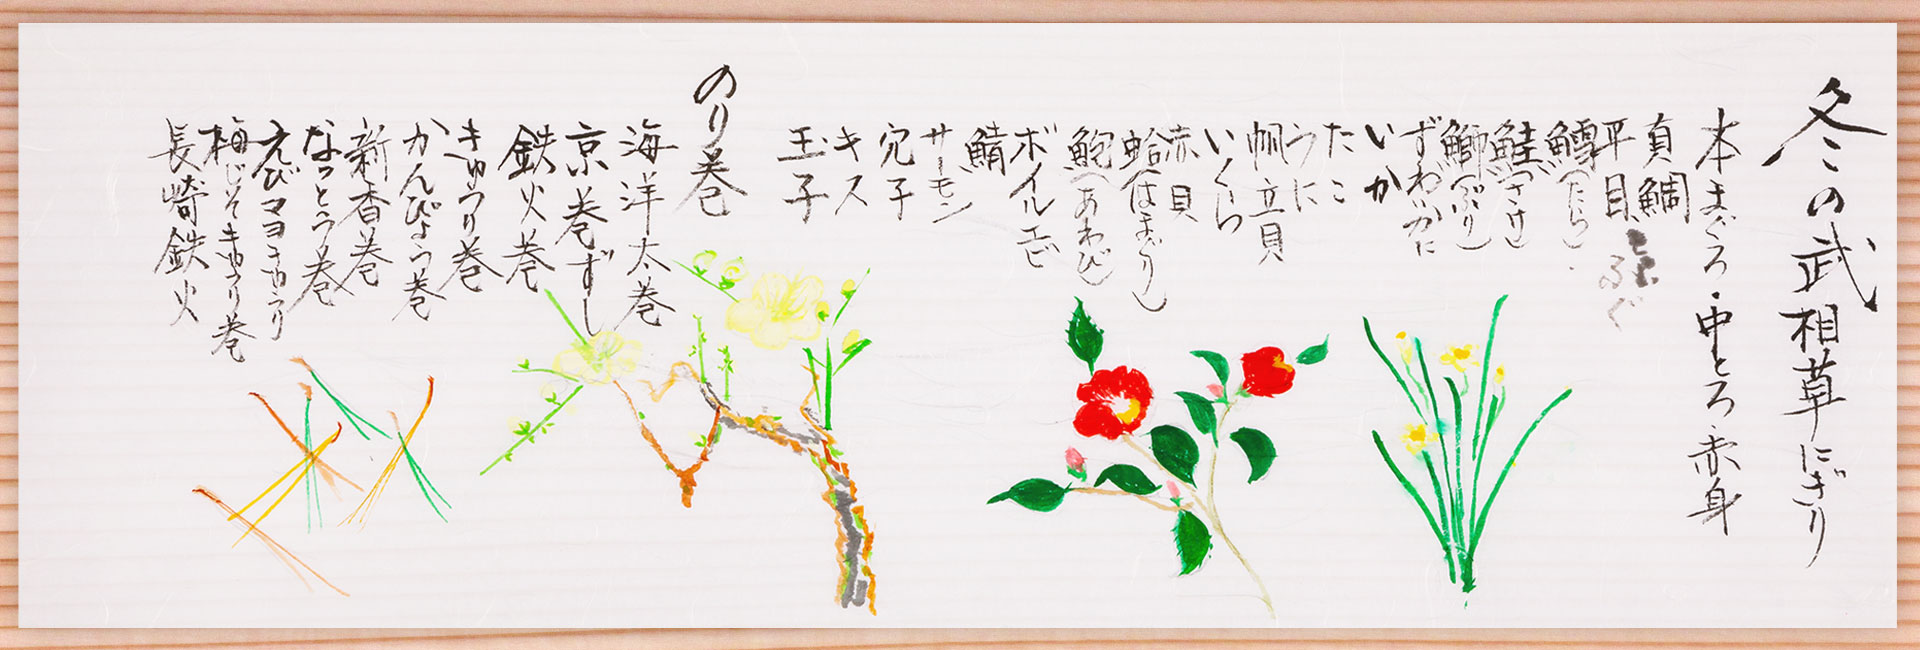 冬の武相草にぎり
本まぐろ・中とろ・赤身
真鯛
平目、ふぐ
鱈(たら)
鮭(さけ)
鰤(ぶり)
ずわいがに
いか
たこ
うに
帆立貝
いくら
赤貝
蛤(はまぐり)
鮑(あわび)
ボイルエビ
鯖
サーモン
穴子
キス
玉子
のり巻
海洋太巻
京巻ずし
鉄火巻
きゅうり巻
かんぴょう巻
新香巻
なっとう巻
えびマヨきゅうり
梅じそきゅうり巻
長崎鉄火